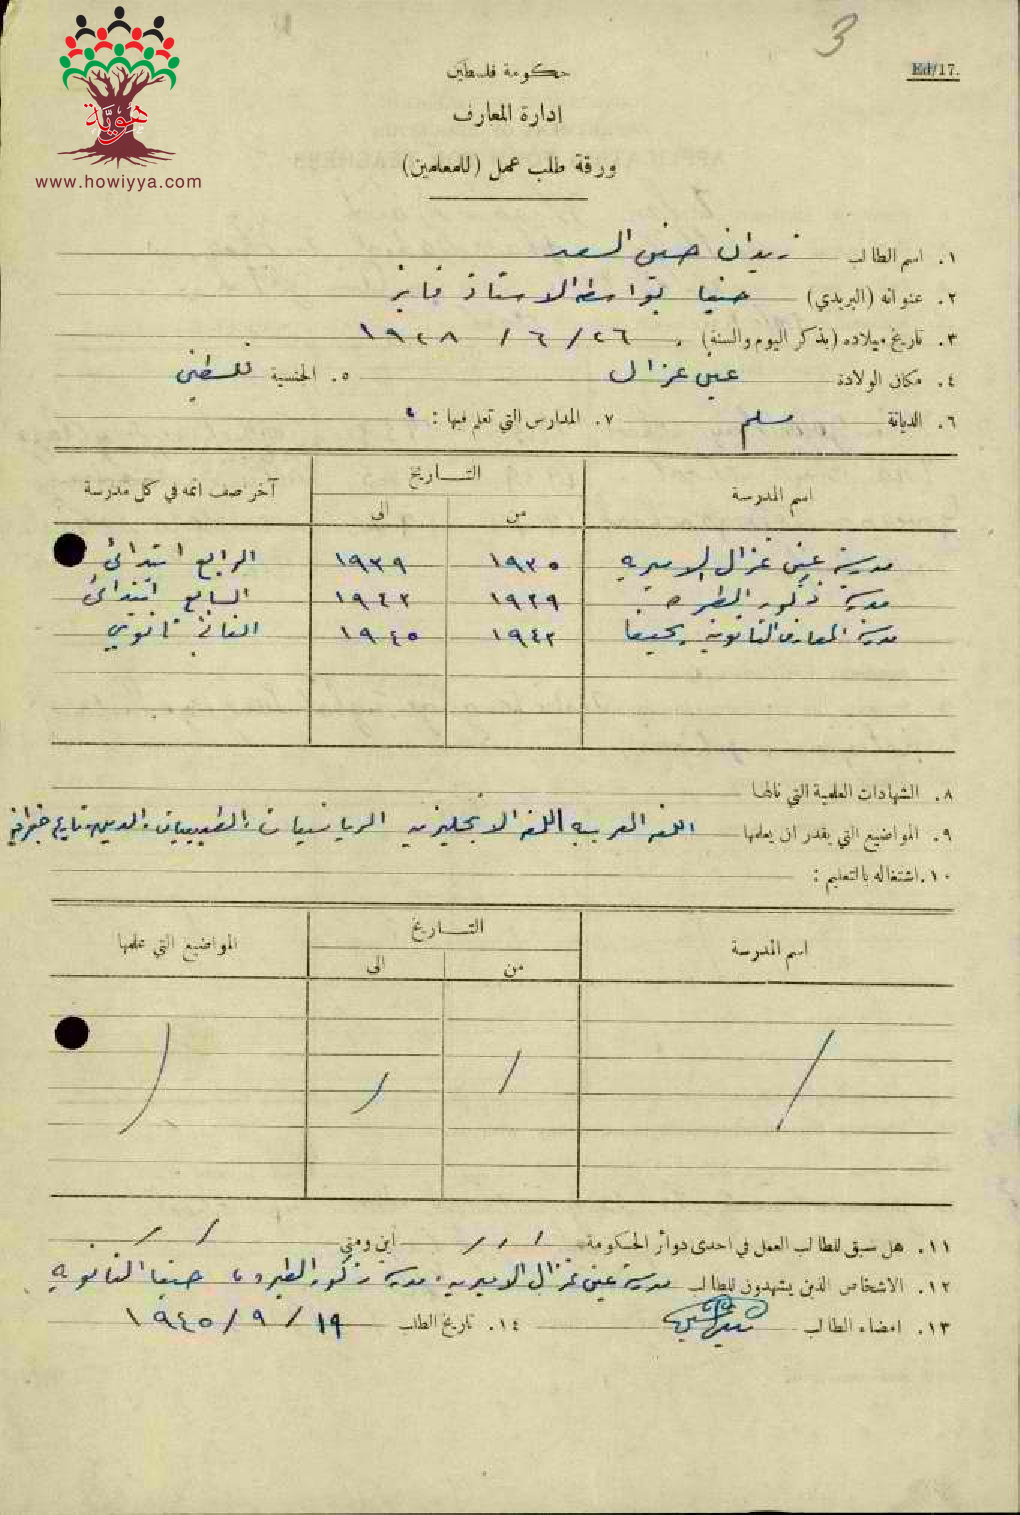 3
Ed/17.
هوية
www.howiyya.com
حكومة فلسطين
ادارة المعارف
ورقة طلب عمل (للمعلمين)
١. اسم الطالب زيدان حسين السعد
٢. عنوانه (البريدي) حيفا بواسطة الاستاذ فايز
٣. تاريخ ميلاده (بذكر اليوم والسنة) ٢٦ / ٦ / ١٩٢٨
٤. مكان الولادة عين غزال ٥. الجنسية فلسطيني
٦. الديانة مسلم ٧. المدارس التي تعلم فيها :
اسم المدرسة التـــاريخ آخر صف اتمه في كل مدرسة
من الى
مدرسة عين غزال الاميرية ١٩٣٥ ١٩٣٩ الرابع ابتدائي
مدرسة ذكور الطيرة ١٩٣٩ ١٩٤٣ السابع ابتدائي
مدرسة المعارف الثانوية بحيفا ١٩٤٣ ١٩٤٥ الثاني ثانوي
٨. الشهادات العلمية التي نالها
٩. المواضيع التي يقدر ان يعلمها اللغه العربيه اللغه الانجليزيه الرياضيات، الطبيعيات، الدين، تاريخ جغرافيه
١٠. اشتغاله بالتعليم :
اسم المدرسة التـــاريخ المواضيع التي علمها
من الى
١١. هل سبق للطالب العمل في احدى دوائر الحكومة اين ومتى
١٢. الاشخاص الذين يشهدون للطالب مدرسة عين غزال الاميريه، مدرسة ذكور الطيره حيفا الثانويه
١٣. امضاء الطالب ١٤. تاريخ الطلب ١٩ / ٩ / ١٩٤٥